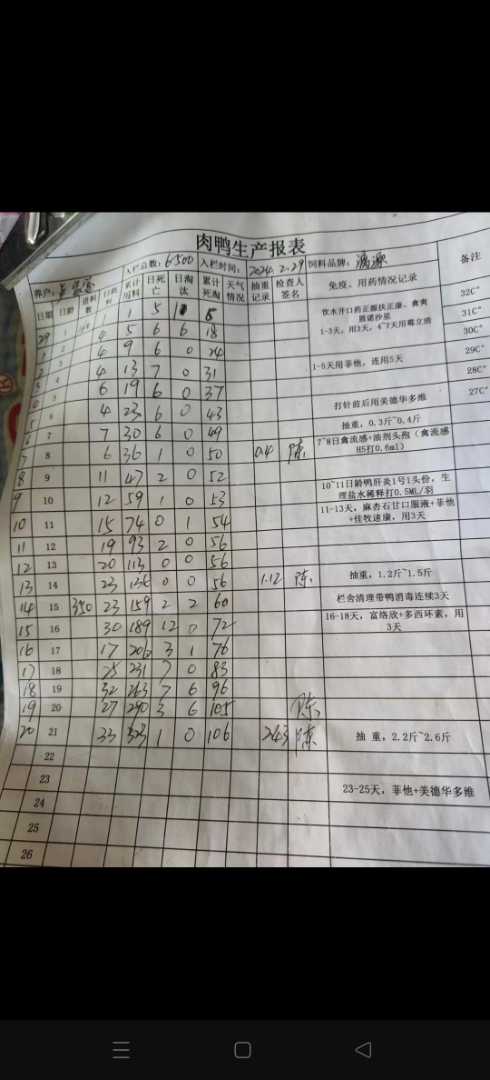 肉鸭生产报表
养户: 入栏总数: 6500 入栏时间: 2024.2.29 饲料品牌:
日期 日龄 进料数 日耗料 累计用料 日死亡 日淘汰 累计死淘 天气情况 抽重记录 检查人签名 免疫、用药情况记录 备注
29 1 1 5
1 2 4 5 6 6 18 1-3天,用3天,4~7天用霉立清 32C°
2 3 4 9 6 0 24 31C°
3 4 4 13 7 0 31 1-5天用菲他,连用5天 30C°
4 5 6 19 6 0 37 29C°
5 6 4 23 6 0 43 打针前后用美德华多维 28C°
6 7 7 30 6 0 49 抽重,0.3斤~0.4斤 27C°
7 8 6 36 1 0 50 0.4 陈 7~8日禽流感+油剂头孢(禽流感H5打0.6ml)
8 9 11 47 2 0 52
9 10 12 59 1 0 53 10~11日龄鸭肝炎1号1头份,生理盐水稀释打0.5ML/羽
10 11 15 74 0 1 54 11-13天,麻杏石甘口服液+菲他+佳牧速康,用3天
11 12 19 93 2 0 56
12 13 20 113 0 0 56
13 14 23 136 0 0 56 1.12 陈 抽重,1.2斤~1.5斤
14 15 350 23 159 2 2 60 栏舍清理带鸭消毒连续3天
15 16 30 189 12 0 72 16-18天,富络欣+多西环素,用3天
16 17 17 206 3 1 76
17 18 25 231 7 0 83
18 19 32 263 7 6 96
19 20 27 290 3 6 105 陈
20 21 33 323 1 0 106 2.43 陈 抽 重,2.2斤~2.6斤
22
23 23-25天,菲他+美德华多维
24
25
26